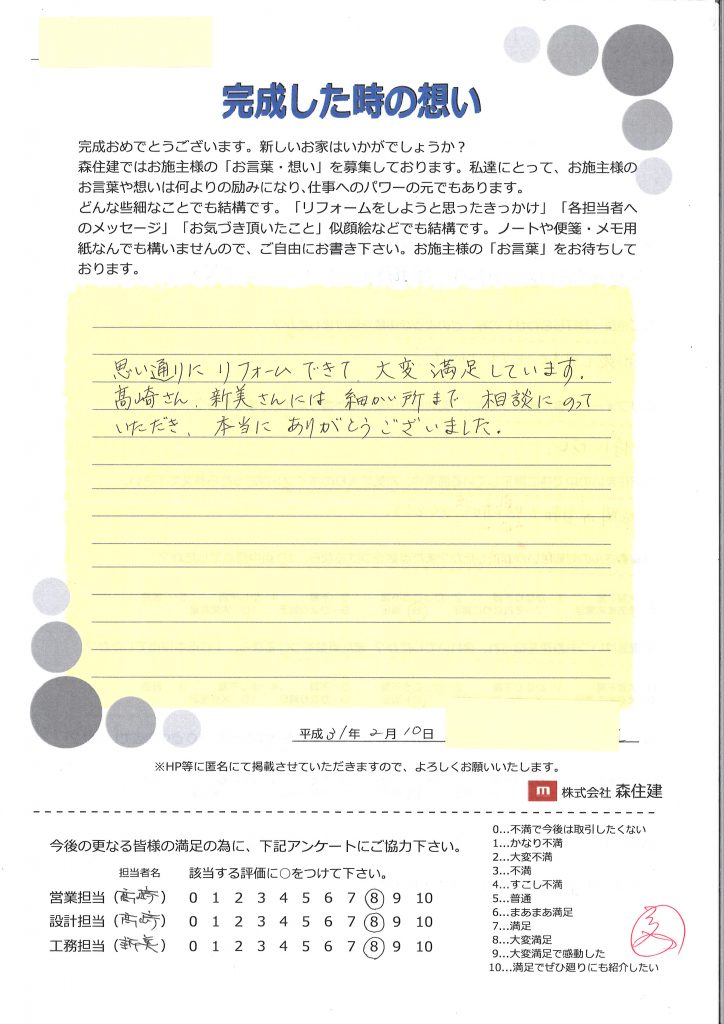 完成した時の想い
完成おめでとうございます。新しいお家はいかがでしょうか？
森住建ではお施主様の「お言葉・想い」を募集しております。私達にとって、お施主様の
お言葉や想いは何よりの励みになり､仕事へのパワーの元でもあります。
どんな些細なことでも結構です。「リフォームをしようと思ったきっかけ」「各担当者へ
のメッセージ」「お気づき頂いたこと」似顔絵などでも結構です。ノートや便箋・メモ用
紙なんでも構いませんので、ご自由にお書き下さい。お施主様の「お言葉」をお待ちして
おります。
思い通りに リフォーム できて 大変 満足しています.
髙崎さん、新美さんには 細かい所まで 相談にのって
いただき、本当に ありがとうございました.
平成31年 2月10日
※HP等に匿名にて掲載させていただきますので、よろしくお願いいたします。
m 株式会社 森住建
今後の更なる皆様の満足の為に、下記アンケートにご協力下さい。
担当者名 該当する評価に○をつけて下さい。
営業担当（髙崎） 0 1 2 3 4 5 6 7 8 9 10
設計担当（髙崎） 0 1 2 3 4 5 6 7 8 9 10
工務担当（新美） 0 1 2 3 4 5 6 7 8 9 10
0…不満で今後は取引したくない
1…かなり不満
2…大変不満
3…不満
4…すこし不満
5…普通
6…まあまあ満足
7…満足
8…大変満足
9…大変満足で感動した
10…満足でぜひ廻りにも紹介したい